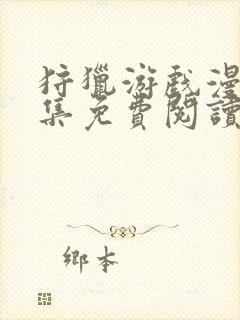 狩獵游戲漫
集免費閱讀
鄉本